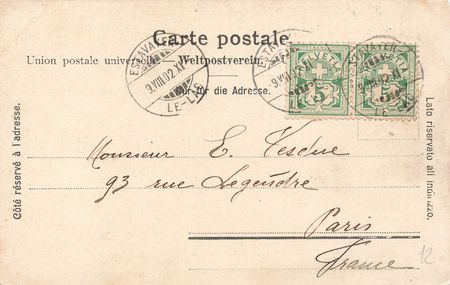 Carte postale.
Union postale universelle. Weltpostverein.
Nur für die Adresse.
ESTAVAYER
9.VIII.02.XI
LE-LAC
HELVETIA
5
HELVETIA
5
Côté réservé à l'adresse.
Lato riservato all'indirizzo.
Monsieur E.
93 rue Legendre
Paris
France
12